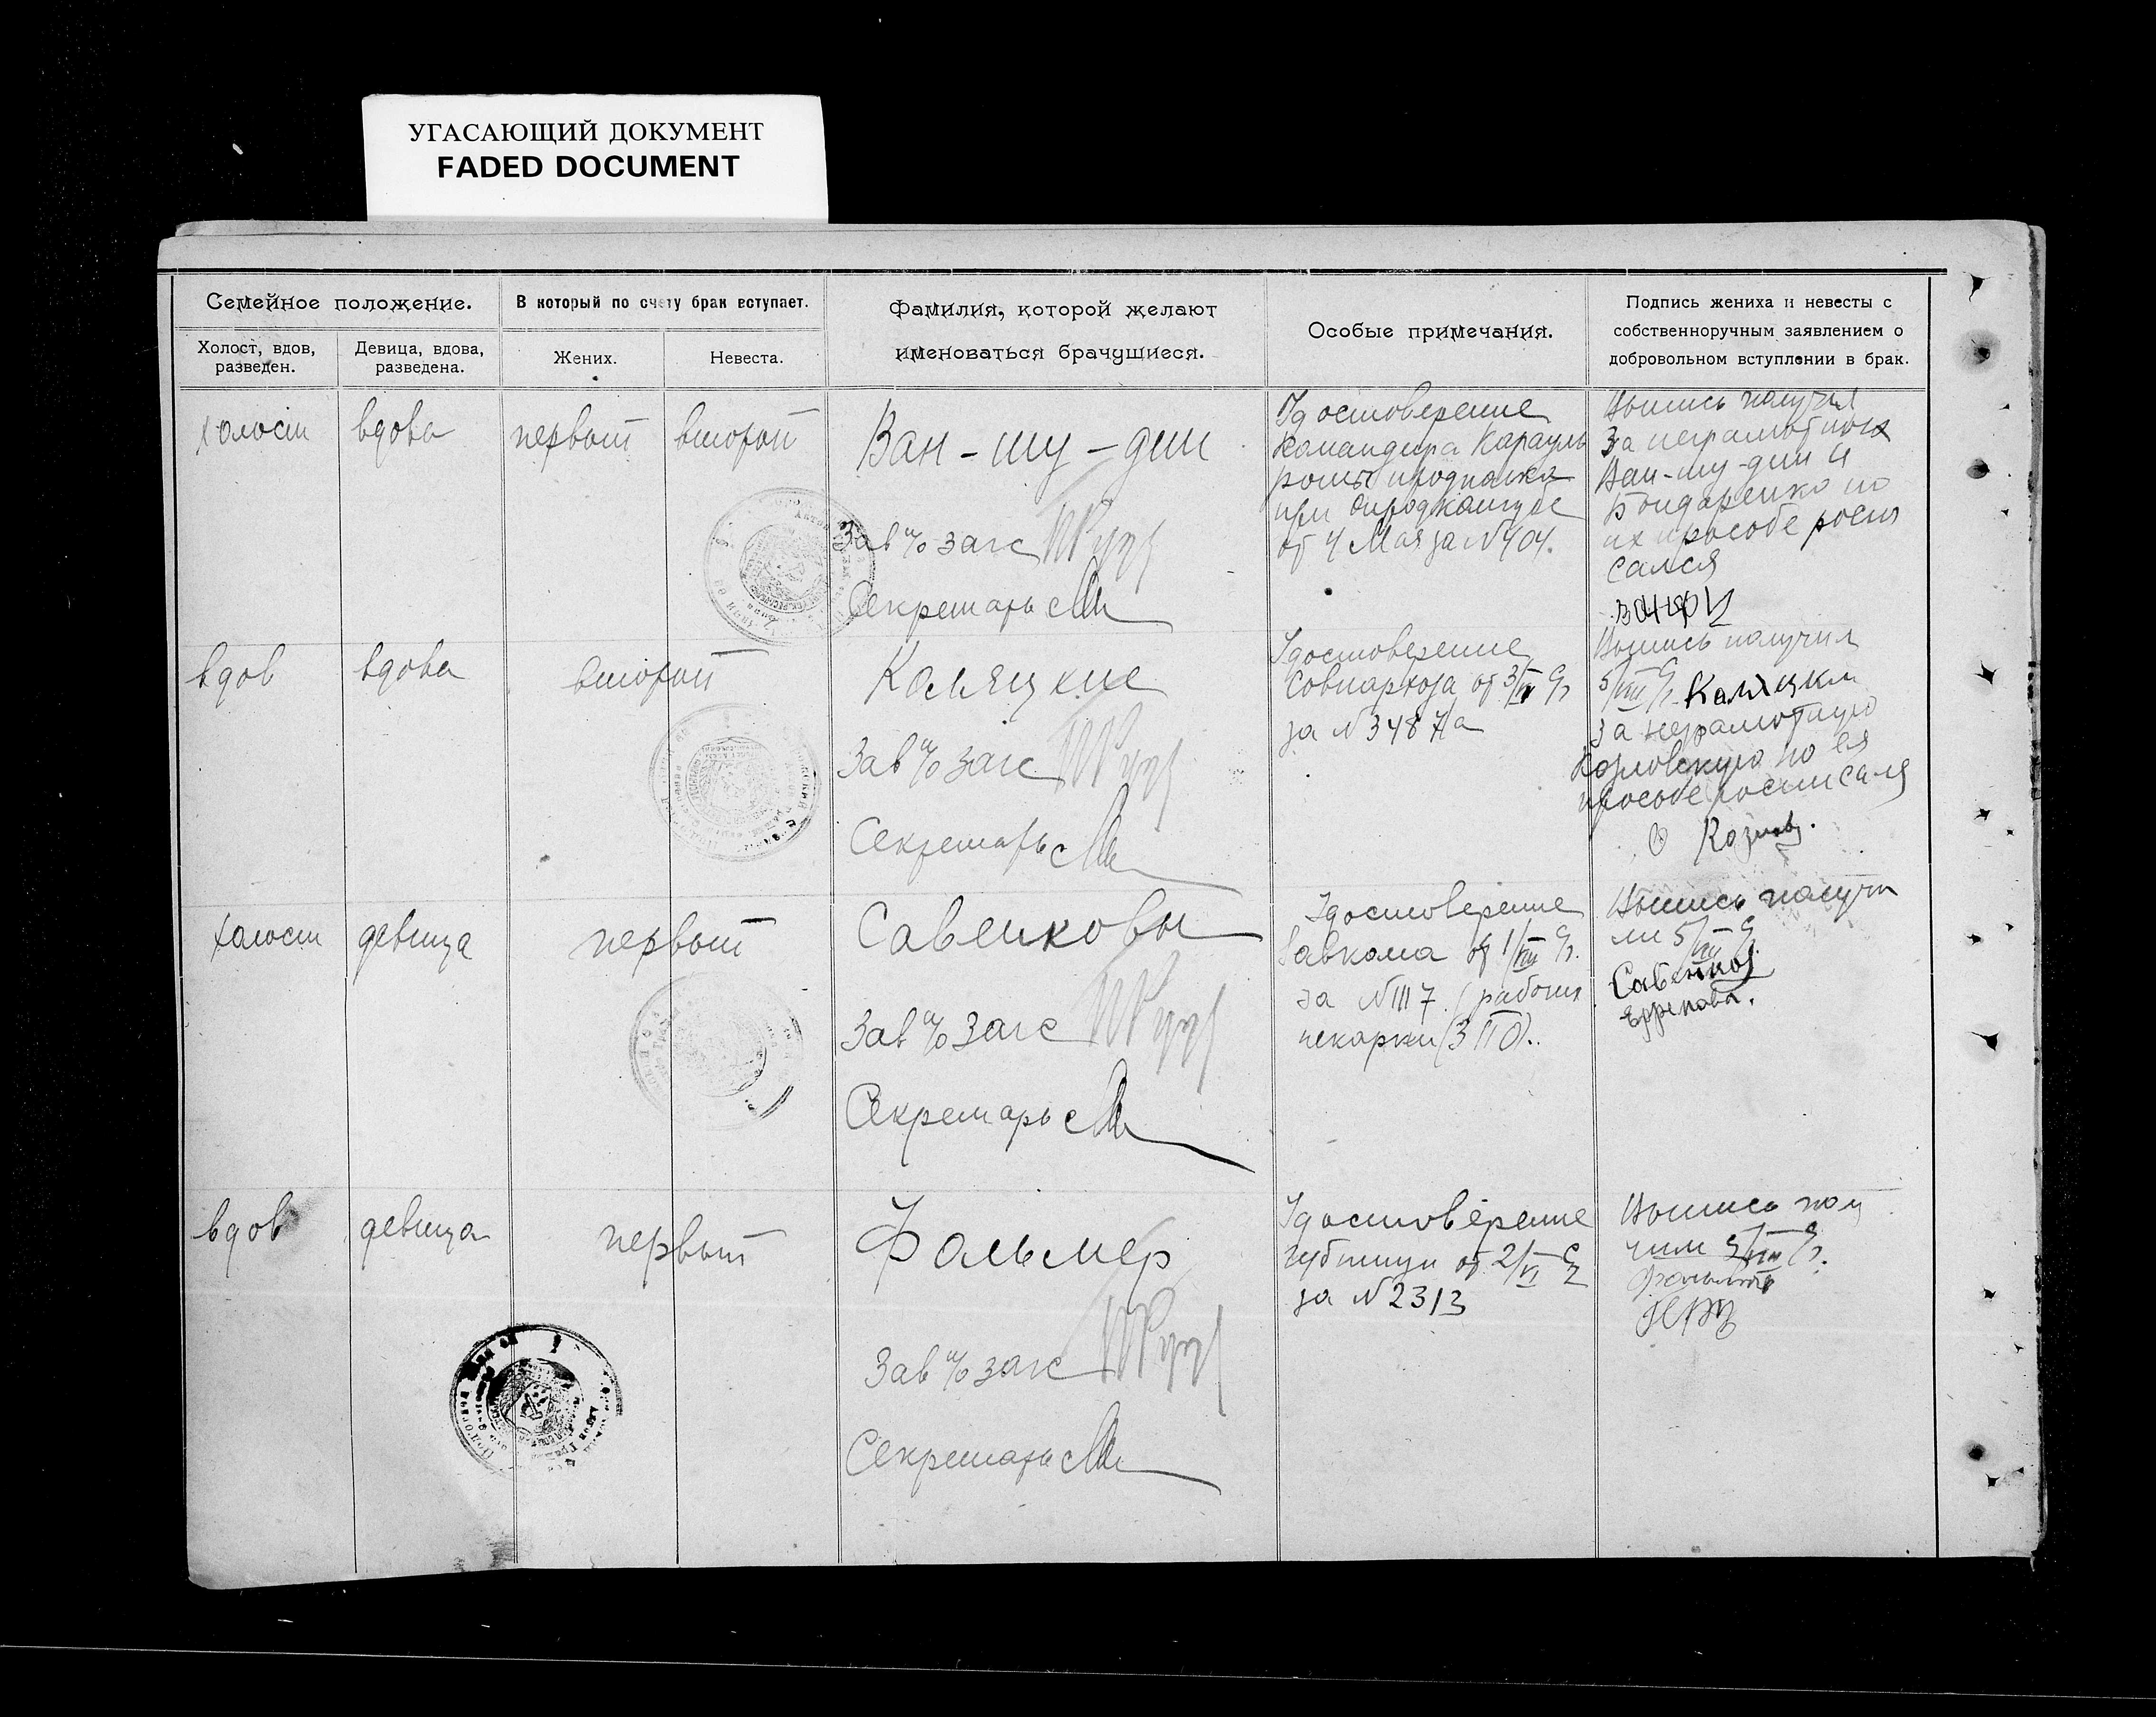 УГАСАЮЩИЙ ДОКУМЕНТ
FADED DOCUMENT
Семейное положение.
В который по счету брак вступает.
Фамилия, которой желают
именоваться брачущиеся.
Особые примечания.
Подпись жениха и невесты с
собственноручным заявлением о
добровольном вступлении в брак.
Холост, вдов,
разведен.
Девица, вдова,
разведена.
Жених.
Невеста.
холост
вдова
первый
второй
Ван-шу-дин
Зав п/о загс
Секретарь
Удостоверение
командира Карауль
роты
при
от 4 Мая за N 404.
Выпись получил
За неграмотных
Ван-шу-дин и
Бондаренко по
их просьбе роспи
сался
вдов
вдова
второй
Каляцкие
Зав п/о загс
Секретарь
Удостоверение
Совнархоза от 3/
за N 3487/а
Выпись получил
5/VIII Каляцки
За неграмотную
Козловскую по ея
просьбе росписался
холост
девица
первый
Савенковы
Зав п/о загс
Секретарь
Удостоверение
Завкома от 1/VIII
за N 1117 (рабочия
пекарни
Выпись получи
ли 5/VIII
Савенков
вдов
девица
первый
Фольмер
Зав п/о загс
Секретарь
Удостоверение
от 2/VI
за N 2313
Выпись полу
чили 5/VIII